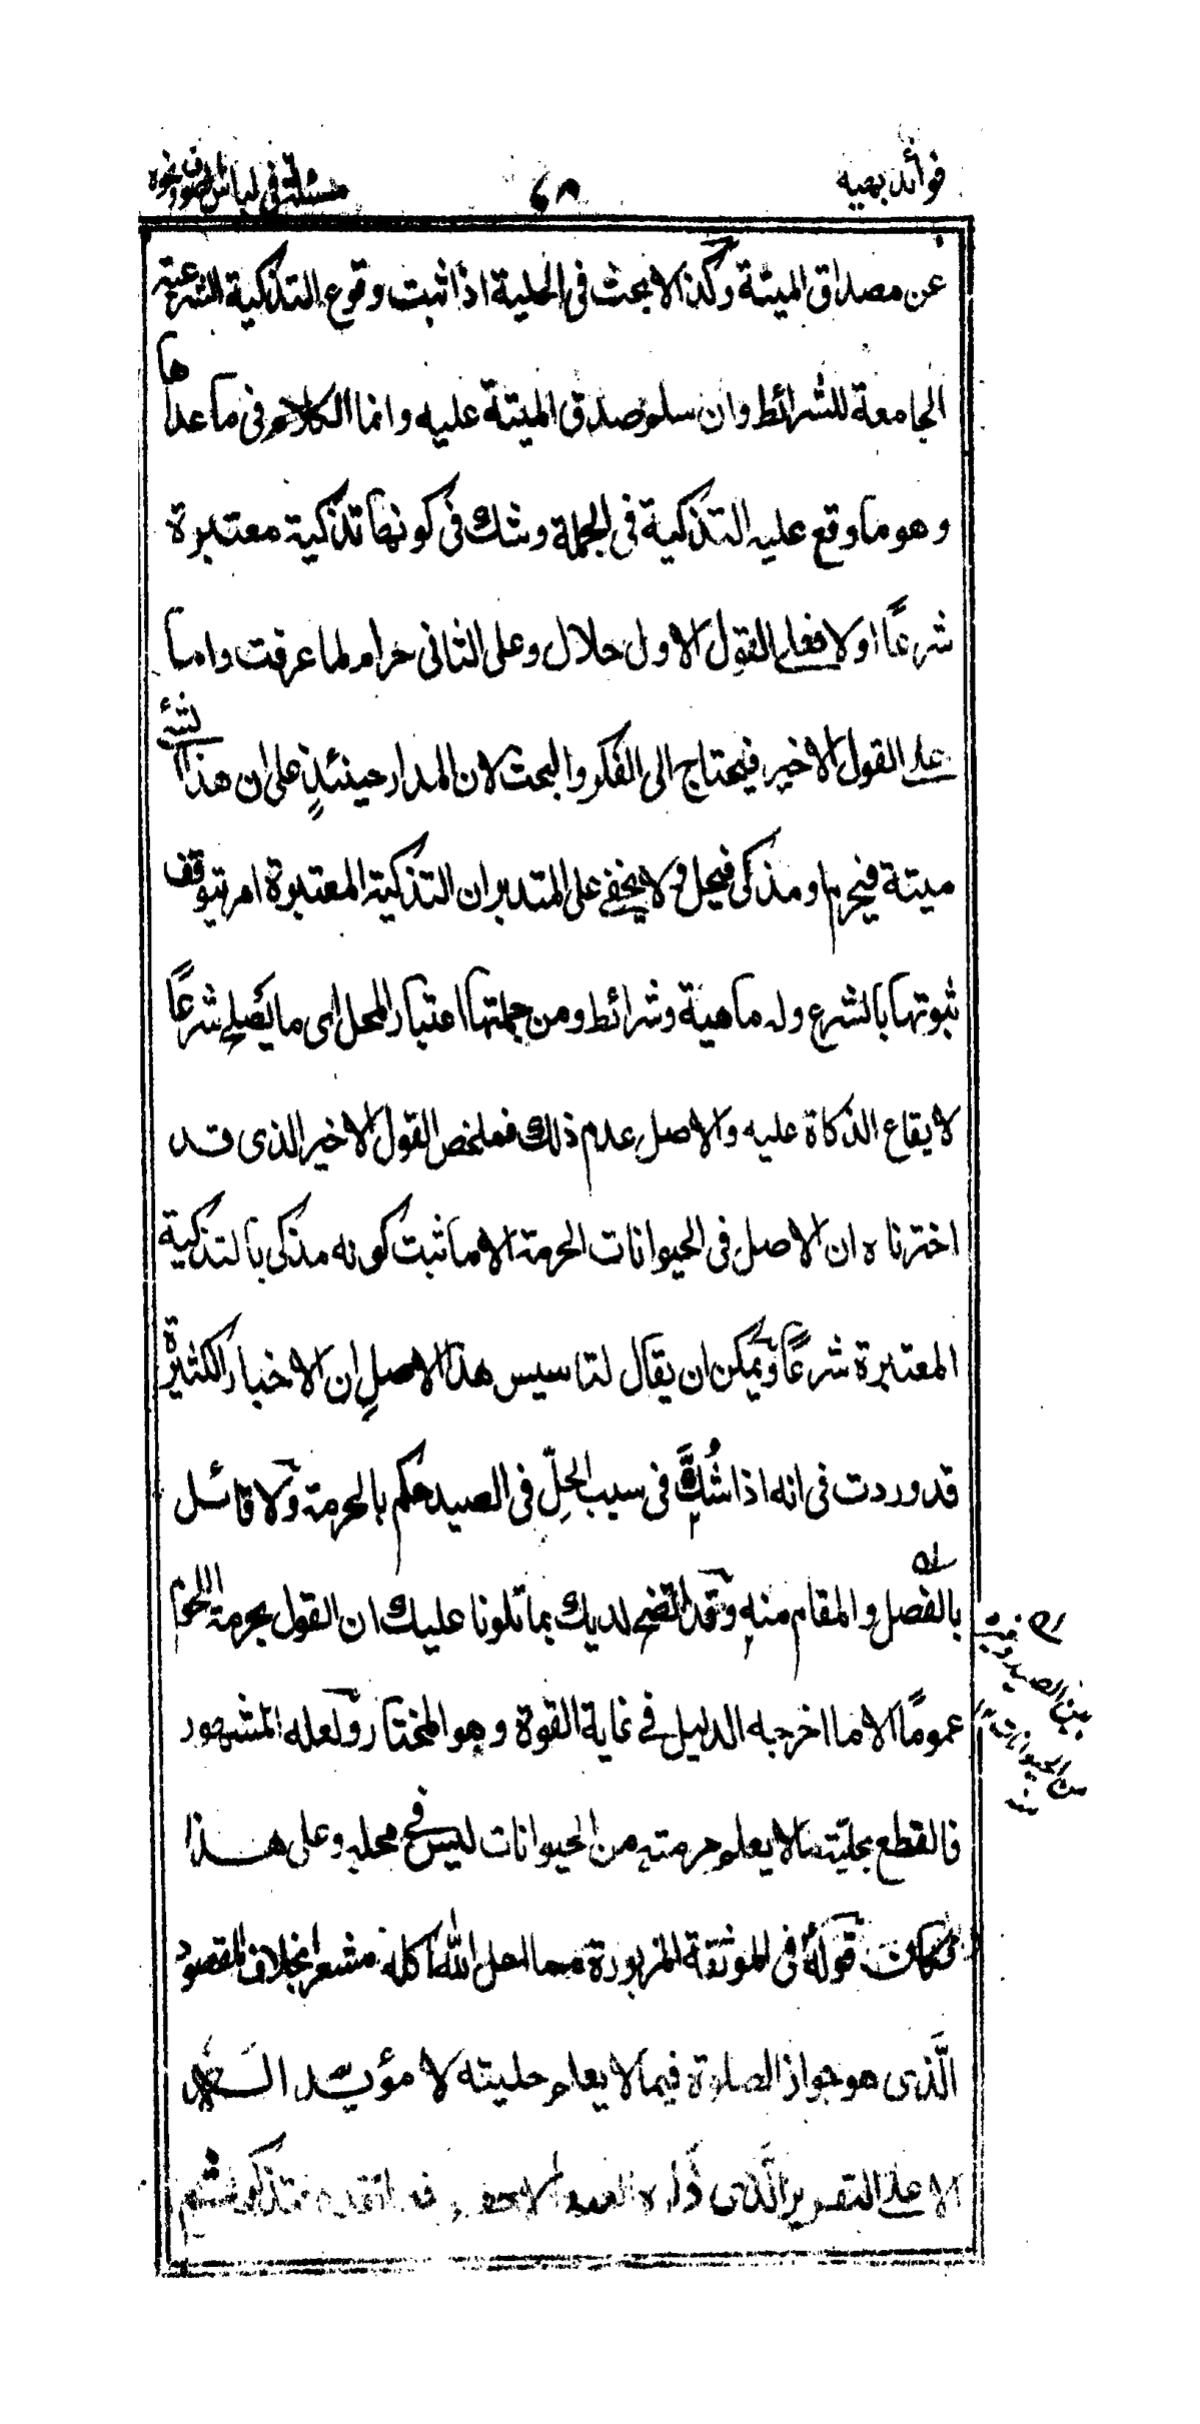 فوائد بهيه
مسئلة في لباس الصوف ونحوه
عن مصداق الميتة وكذا لا بحث في الحلية اذا ثبت وقوع التذكية الشرعية
الجامعة للشرائط وان سلم صدق الميتة عليه وانما الكلام في ما عداها
وهو ما وقع عليه التذكية في الجملة وشك في كونها تذكية معتبرة
شرعًا اولا فعلى القول الاول حلال وعلى الثانى حرام لما عرفت واما
على القول الاخير فيحتاج الى الفكر والبحث لان المدار حينئذٍ على ان هذا الشئ
ميتة فيحرم او مذكى فيحل ولا يخفى على المتدبر ان التذكية المعتبرة امر يتوقف
ثبوتها بالشرع وله ماهية وشرائط ومن جملتها اعتبار المحل اى ما يصلح شرعًا
لايقاع الذكاة عليه والاصل عدم ذلك فملخص القول الاخير الذى قد
اخترناه ان الاصل فى الحيوانات الحرمة الا ما ثبت كونه مذكى بالتذكية
المعتبرة شرعًا ويمكن ان يقال لتاسيس هذا الاصلِ ان الاخبار الكثيرة
قد وردت فى انه اذا شُكَّ فى سبب الحلِّ فى الصيد حكم بالحرمة ولا قائل
بالفصل والمقام منه وقد اتضح لديك بما تلونا عليك ان القول بحرمة اللحوم
عمومًا الا ما اخرجه الدليل في غاية القوة وهو المختار ولعله المشهور
فالقطع بحليّة ما لا يعلم حرمته من الحيوانات ليس في محله وعلى هذا
فكان قوله فى الموثقة المزبورة مما احل الله اكله مشعرا بخلاف المقصود
الَّذى هو جواز الصلوة فيما لا يعلم حليته لا مؤيد
الا على التقرير الَّذى
اى
بين الصيد وغيره
من الحيوانات